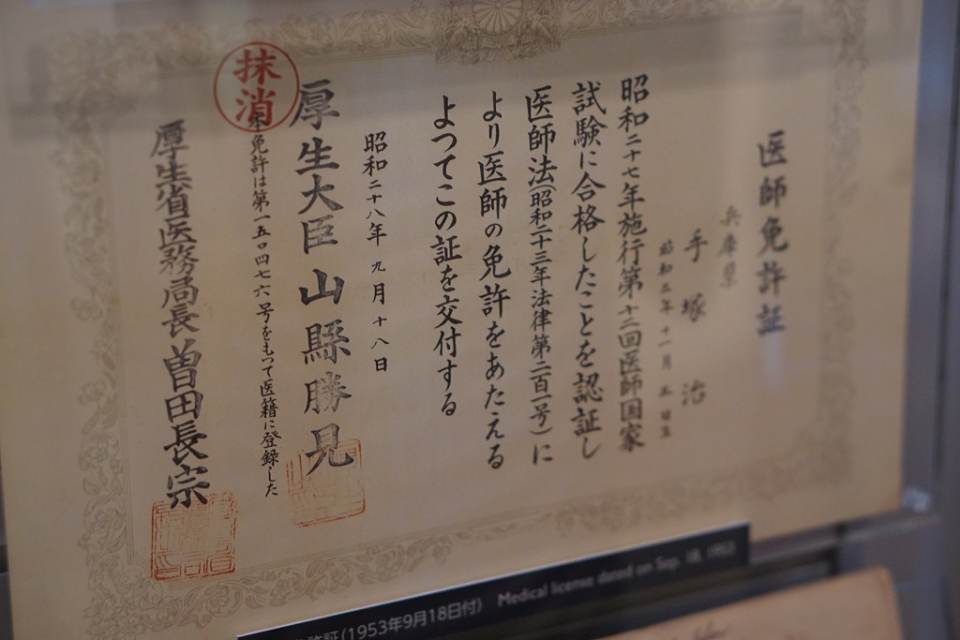 医師免許証
兵庫県
手塚治
昭和三年十一月三日生
昭和二十七年施行第十三回医師国家
試験に合格したことを認証し
医師法(昭和二十三年法律第二百一号)に
より医師の免許をあたえる
よつてこの証を交付する
昭和二十八年九月十八日
厚生大臣 山縣勝見
抹消
本免許は第一五〇四七六号をもつて医籍に登録した
厚生省医務局長 曽田長宗
許証(1953年9月18日付) Medical license dated on Sep. 18, 1953